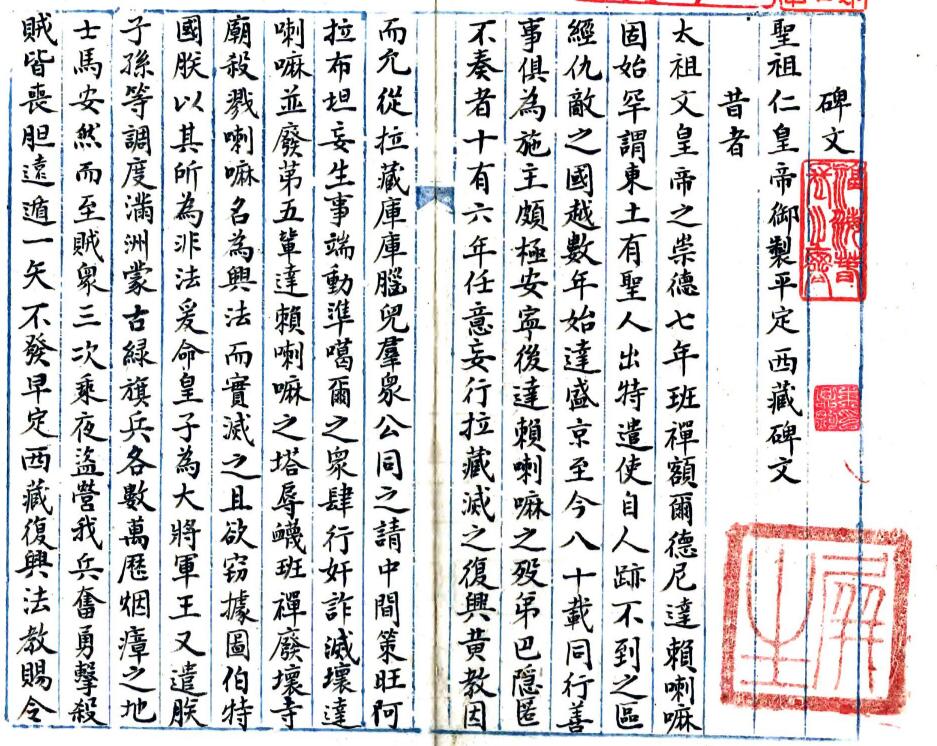 碑文
聖祖仁皇帝御製平定西藏碑文
昔者
太祖文皇帝之崇德七年班禪額爾德尼達賴喇嘛
固始罕謂東土有聖人出特遣使自人跡不到之區
經仇敵之國越數年始達盛京至今八十載同行善
事俱為施主頗極安寧後達賴喇嘛之歿弟巴隠匿
不奏者十有六年任意妄行拉藏滅之復興黃教因
而允從拉藏庫庫腦兒羣衆公同之請中間策旺阿
拉布坦妄生事端動準噶爾之衆肆行奸詐滅壞達
喇嘛並廢第五輩達賴喇嘛之塔辱衊班禪廢壞寺
廟殺戮喇嘛名為興法而實滅之且欲窃據圖伯特
國朕以其所為非法爰命皇子為大將軍王又遣朕
子孫等調度滿洲蒙古緑旗兵各數萬歷烟瘴之地
士馬安然而至賊衆三次乘夜盜營我兵奮勇擊殺
賊皆喪胆遠遁一矢不發早定西藏復興法教賜今